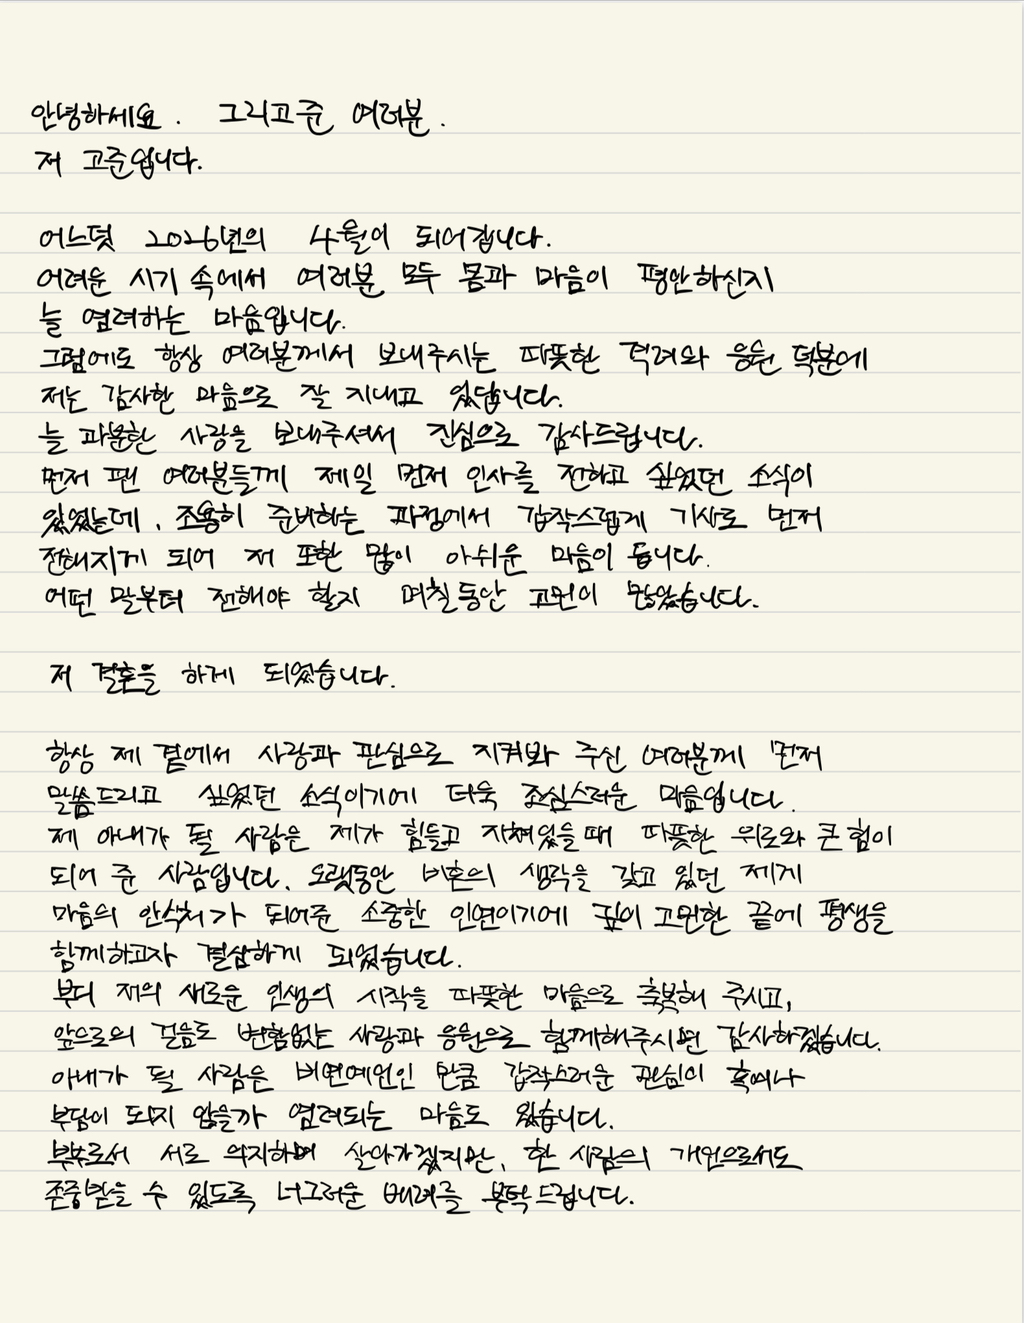 안녕하세요. 그리고준 여러분.
저 고준입니다.
어느덧 2026년의 4월이 되어갑니다.
어려운 시기 속에서 여러분 모두 몸과 마음이 평안하신지
늘 염려하는 마음입니다.
그럼에도 항상 여러분께서 보내주시는 따뜻한 격려와 응원 덕분에
저는 감사한 마음으로 잘 지내고 있답니다.
늘 과분한 사랑을 보내주셔서 진심으로 감사드립니다.
먼저 팬 여러분들께 제일 먼저 인사를 전하고 싶었던 소식이
있었는데, 조용히 준비하는 과정에서 갑작스럽게 기사로 먼저
전해지게 되어 저 또한 많이 아쉬운 마음이 듭니다.
어떤 말부터 전해야 할지 며칠동안 고민이 많았습니다.
저 결혼을 하게 되었습니다.
항상 제 곁에서 사랑과 관심으로 지켜봐 주신 여러분께 먼저
말씀드리고 싶었던 소식이기에 더욱 조심스러운 마음입니다.
제 아내가 될 사람은 제가 힘들고 지쳐있을때 따뜻한 위로와 큰 힘이
되어 준 사람입니다. 오랫동안 비혼의 생각을 갖고 있던 제게
마음의 안식처가 되어준 소중한 인연이기에 깊이 고민한 끝에 평생을
함께하고자 결심하게 되었습니다.
부디 저의 새로운 인생의 시작을 따뜻한 마음으로 축복해 주시고,
앞으로의 걸음도 변함없는 사랑과 응원으로 함께해주시면 감사하겠습니다.
아내가 될 사람은 비연예인인 만큼 갑작스러운 관심이 혹여나
부담이 되지 않을까 염려되는 마음도 있습니다.
부부로서 서로 의지하며 살아가겠지만, 한 사람의 개인으로서도
존중받을 수 있도록 너그러운 배려를 부탁드립니다.